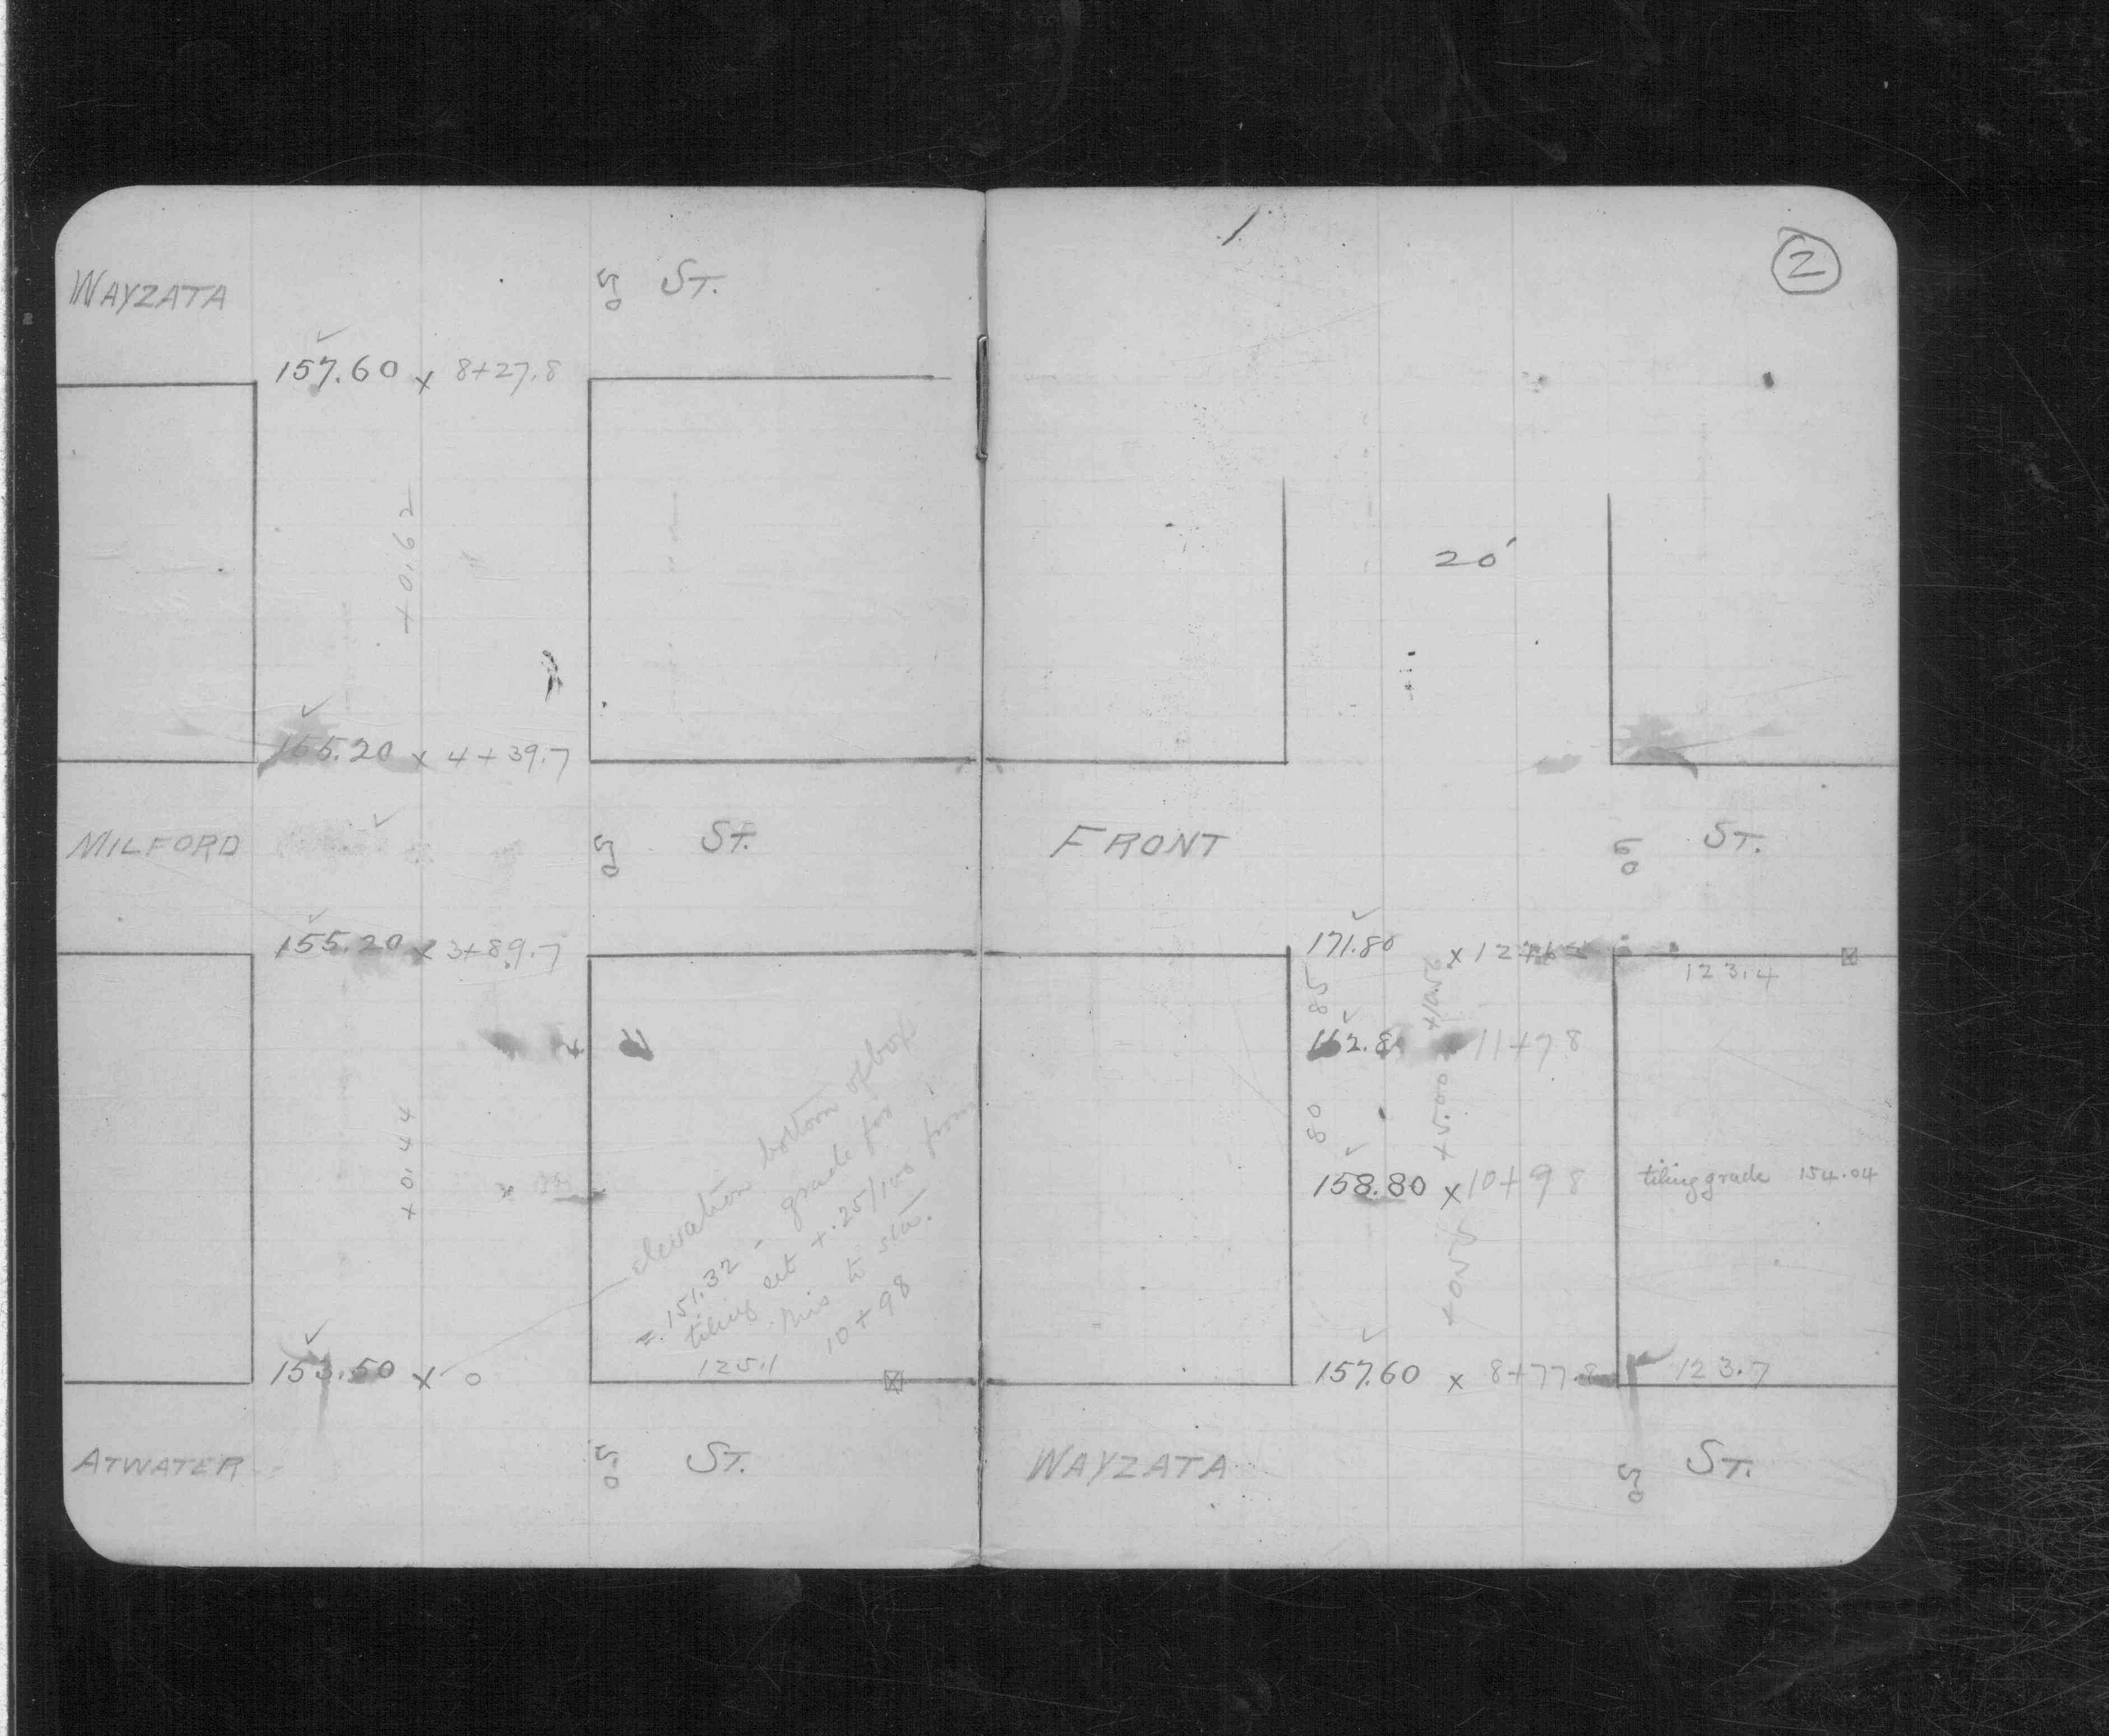 WAYZATA 50 ST.
157.60 x 8+27.8
+0.62
155.20 x 4+39.7
MILFORD 50 ST.
155.20 x 3+89.7
+0.44
elevation bottom of box
= 151.32 - grade for
tiling set +.25/100 from
this to sta.
10+98
125.1
153.50 x 0
ATWATER 50 ST.
2
20'
FRONT 60 ST.
171.80 x 12+6
123.4
85
162.8 11+78
+5.00
80
158.80 x 10+98
tiling grade 154.04
157.60 x 8+77.8
123.7
WAYZATA 50 ST.